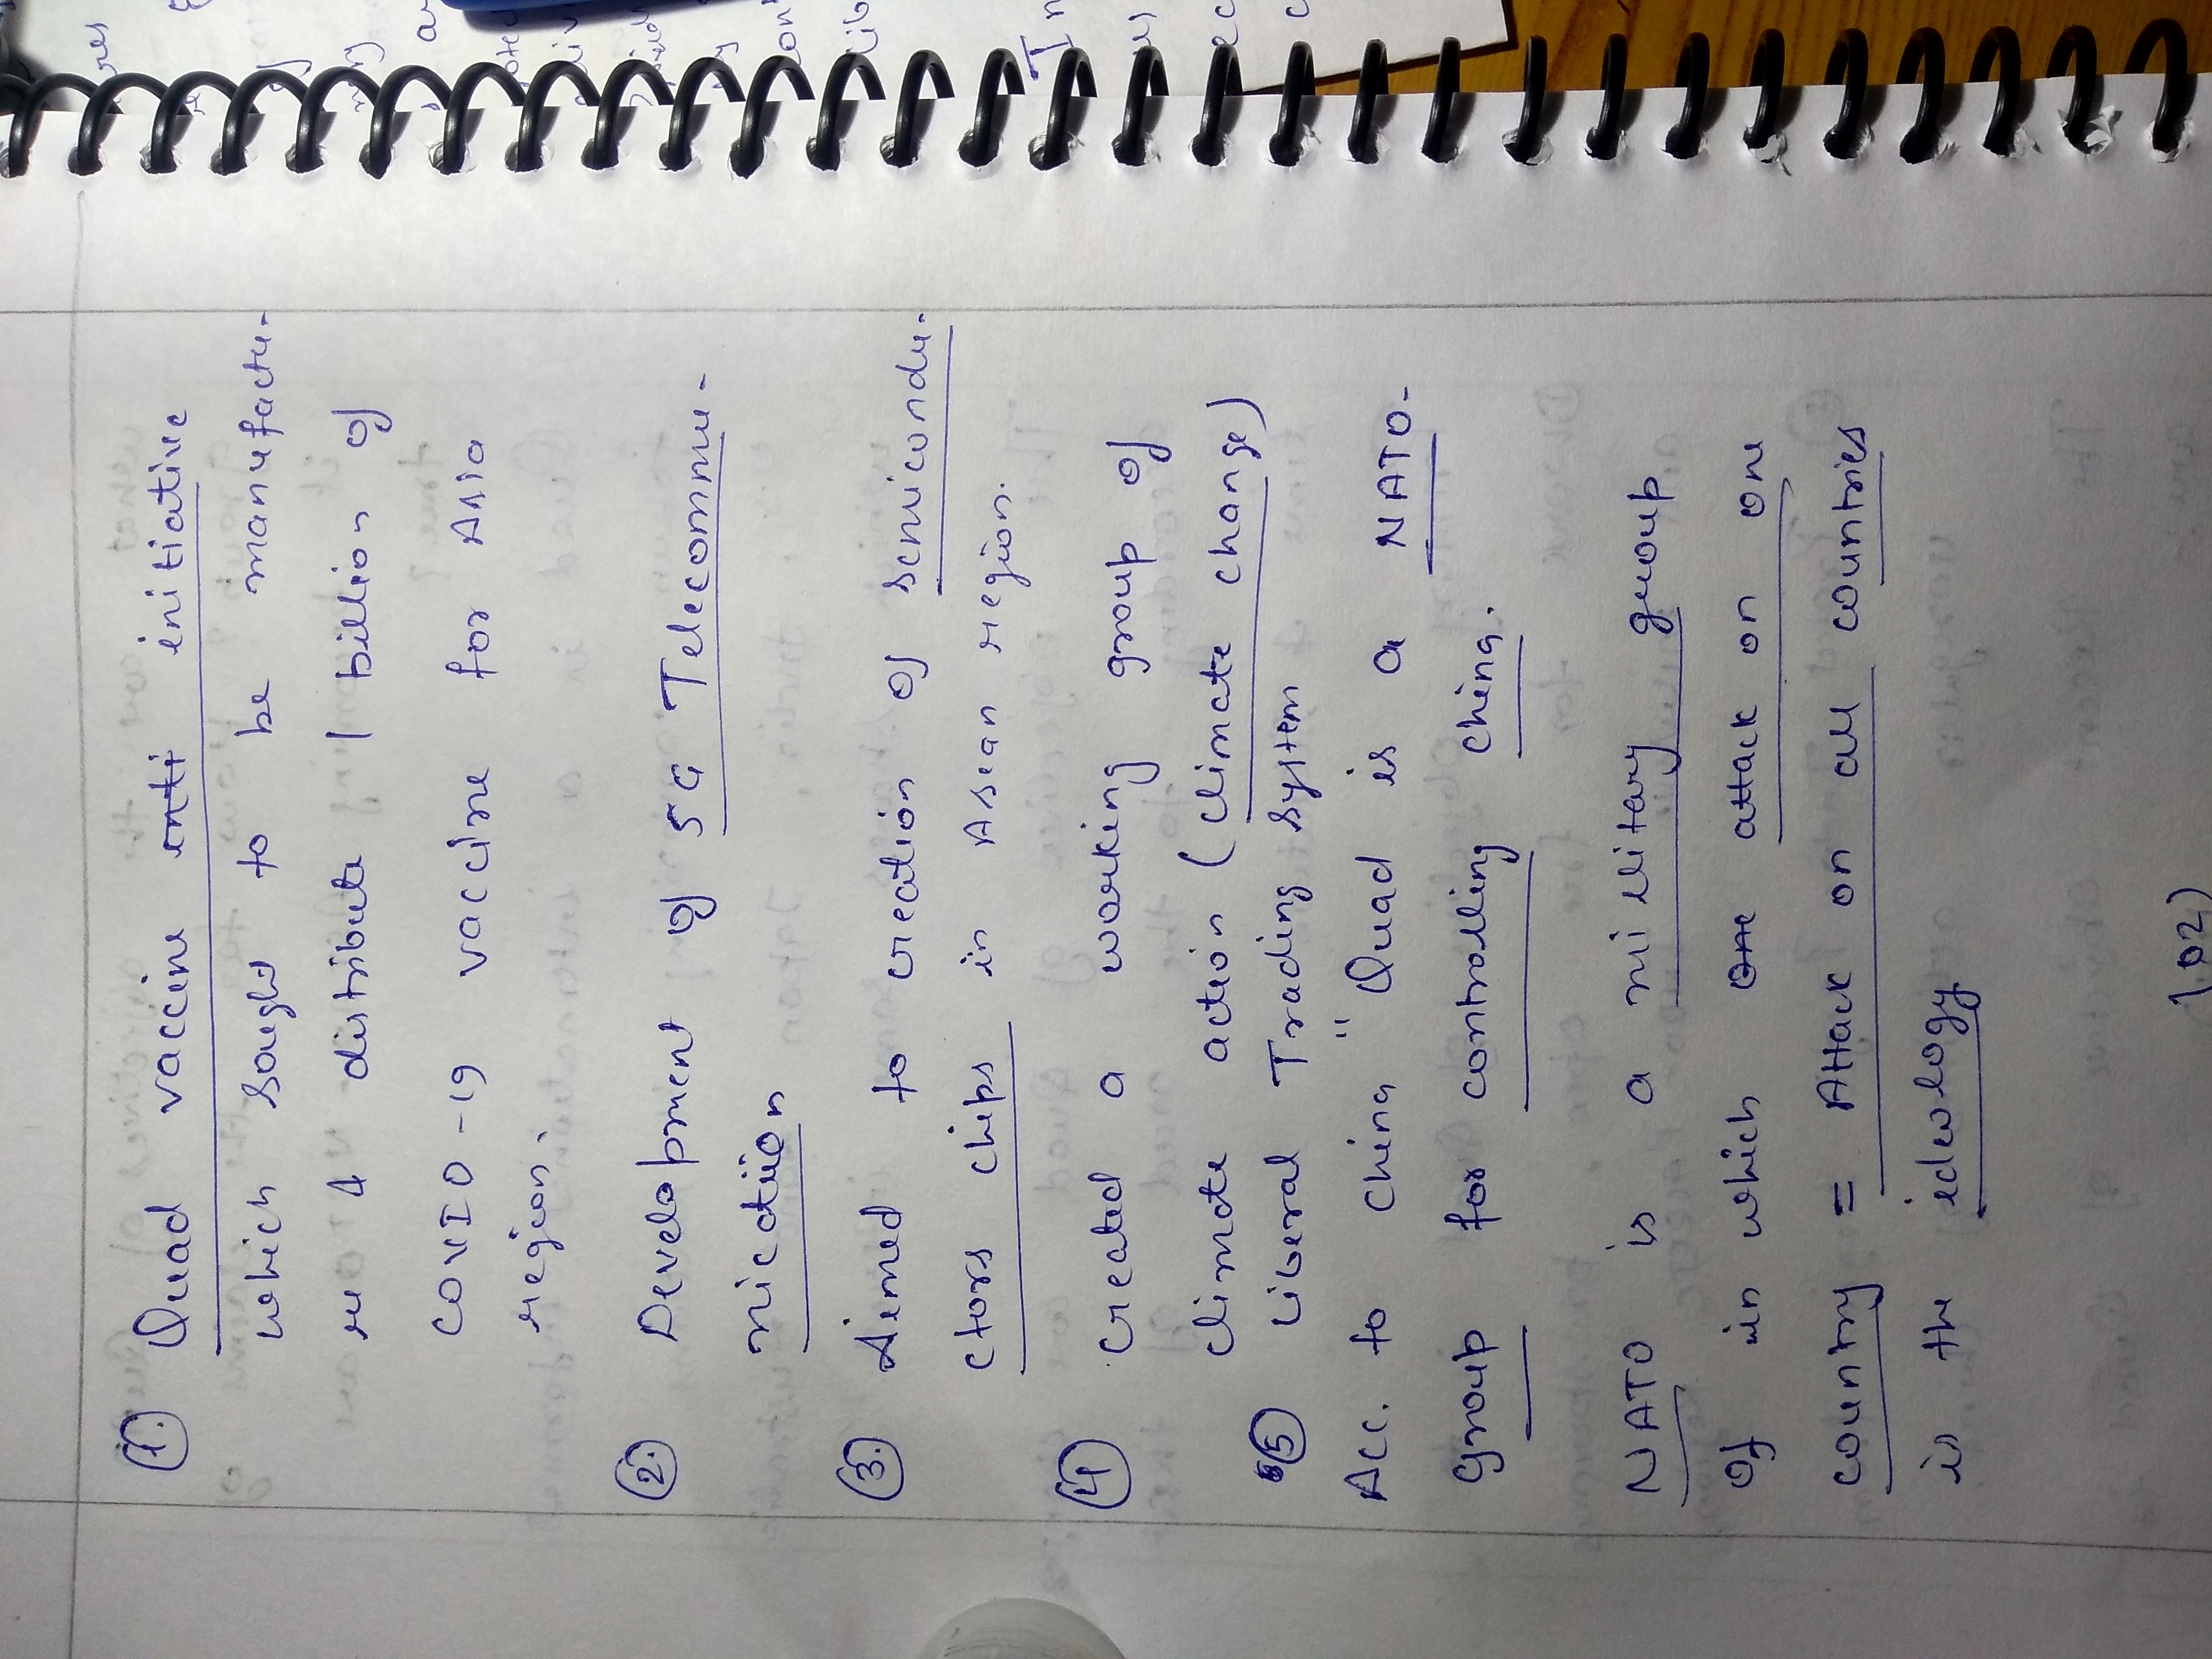 1. Quad vaccine initiative
which sought to be manufactu-
re & distribute 1 billion of
COVID-19 vaccine for Asia
region.
2. Development of 5G Telecommu-
nication
3. Aimed to creation of semicondu-
ctors chips in Asean region.
4 created a working group of
climate action (climate change)
5 Liberal Trading system
Acc. to China " Quad is a NATO-
group for controlling China.
NATO is a military group
of in which attack on one
country = Attack on all countries
is the ideology
102)